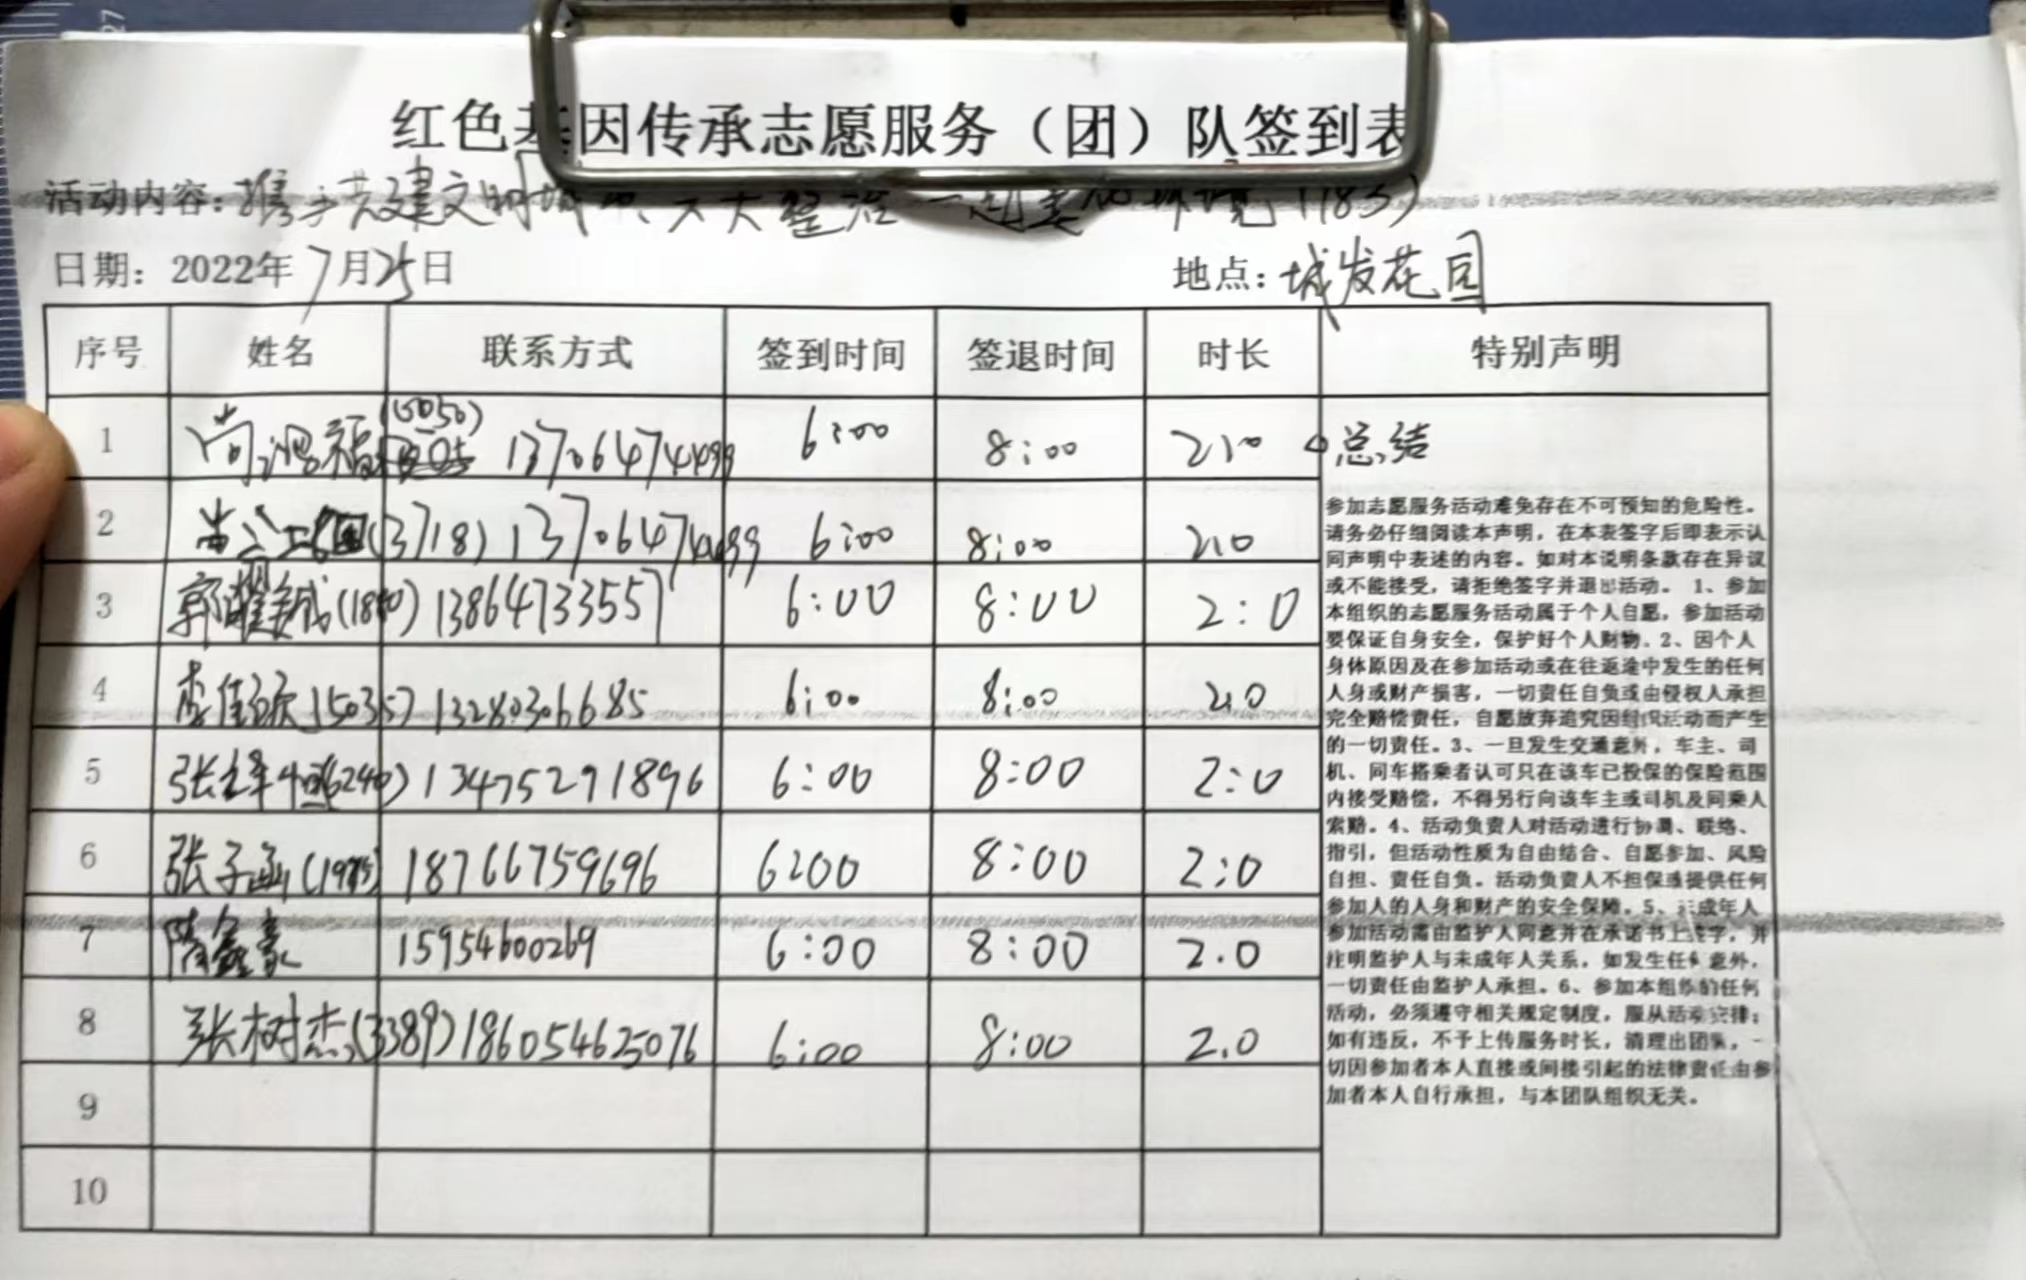 红色基因传承志愿服务（团）队签到表
活动内容：携手共建文明城 大整治一起美化环境（183）
日期：2022年7月25日 地点：城发花园
序号 姓名 联系方式 签到时间 签退时间 时长 特别声明
1 尚 福 (5050) 13706474499 6:00 8:00 2.0 总结
2 尚 (3718) 13706474499 6:00 8:00 2.0
3 郭耀 (1880) 13864733557 6:00 8:00 2:0
4 李佳 (5035) 13280306685 6:00 8:00 2.0
5 张 恒(6240) 13475291896 6:00 8:00 2:0
6 张子涵 18766759696 6:00 8:00 2:0
7 隋鑫豪 15954600269 6:00 8:00 2.0
8 张树杰(3389) 186054625076 6:00 8:00 2.0
9
10
参加志愿服务活动难免存在不可预知的危险性。
请务必仔细阅读本声明，在本表签字后即表示认
同声明中表述的内容。如对本说明条款存在异议
或不能接受，请拒绝签字并退出活动。 1、参加
本组织的志愿服务活动属于个人自愿，参加活动
要保证自身安全，保护好个人财物。2、因个人
身体原因及在参加活动或在往返途中发生的任何
人身或财产损害，一切责任自负或由侵权人承担
完全赔偿责任，自愿放弃追究因组织活动而产生
的一切责任。3、一旦发生交通意外，车主、司
机、同车搭乘者认可只在该车已投保的保险范围
内接受赔偿，不得另行向该车主或司机及同乘人
索赔。4、活动负责人对活动进行协调、联络、
指引，但活动性质为自由结合、自愿参加、风险
自担、责任自负。活动负责人不担保或提供任何
参加人的人身和财产的安全保障。5、未成年人
参加活动需由监护人同意并在承诺书上签字，并
注明监护人与未成年人关系，如发生任何意外，
一切责任由监护人承担。6、参加本组织的任何
活动，必须遵守相关规定制度，服从活动安排；
如有违反，不予上传服务时长，清理出团队，一
切因参加者本人直接或间接引起的法律责任由参
加者本人自行承担，与本团队组织无关。